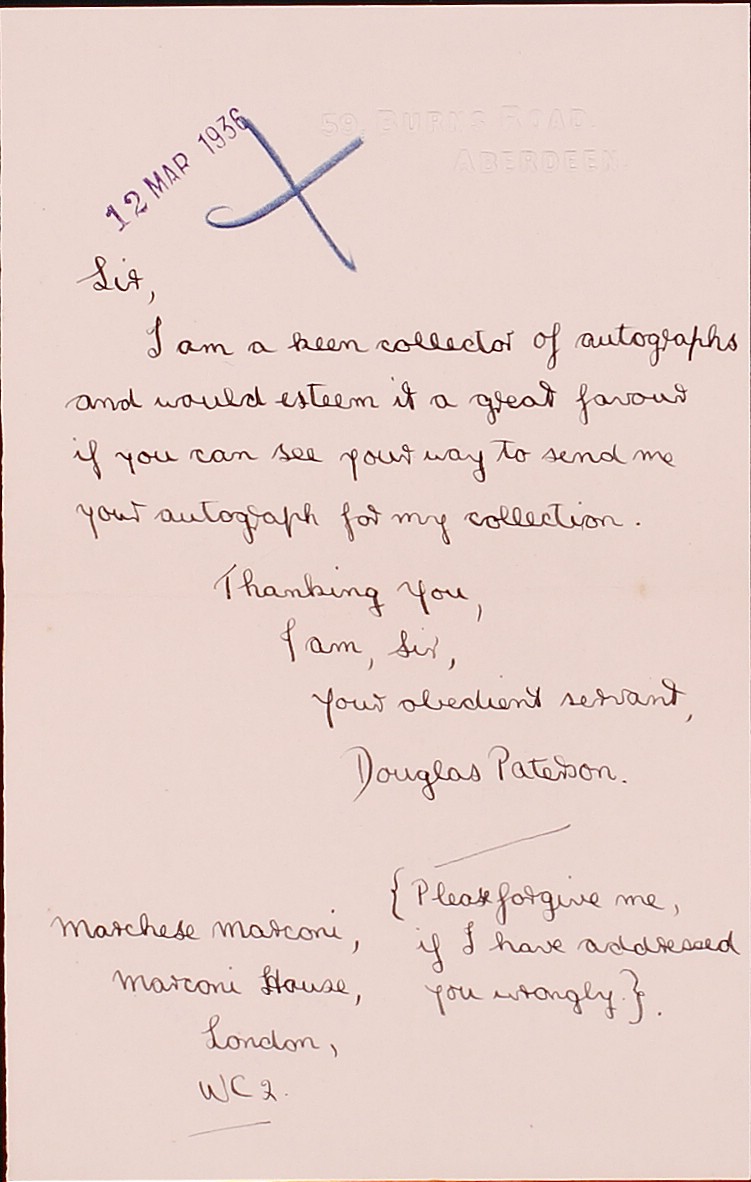 59, BURNS ROAD.
ABERDEEN.
12 MAR 1936
Sir,
I am a keen collector of autographs
and would esteem it a great favour
if you can see your way to send me
your autograph for my collection.
Thanking you,
I am, Sir,
Your obedient servant,
Douglas Paterson.
{Please forgive me,
if I have addressed
you wrongly.}.
Marchese Marconi,
Marconi House,
London,
WC2.